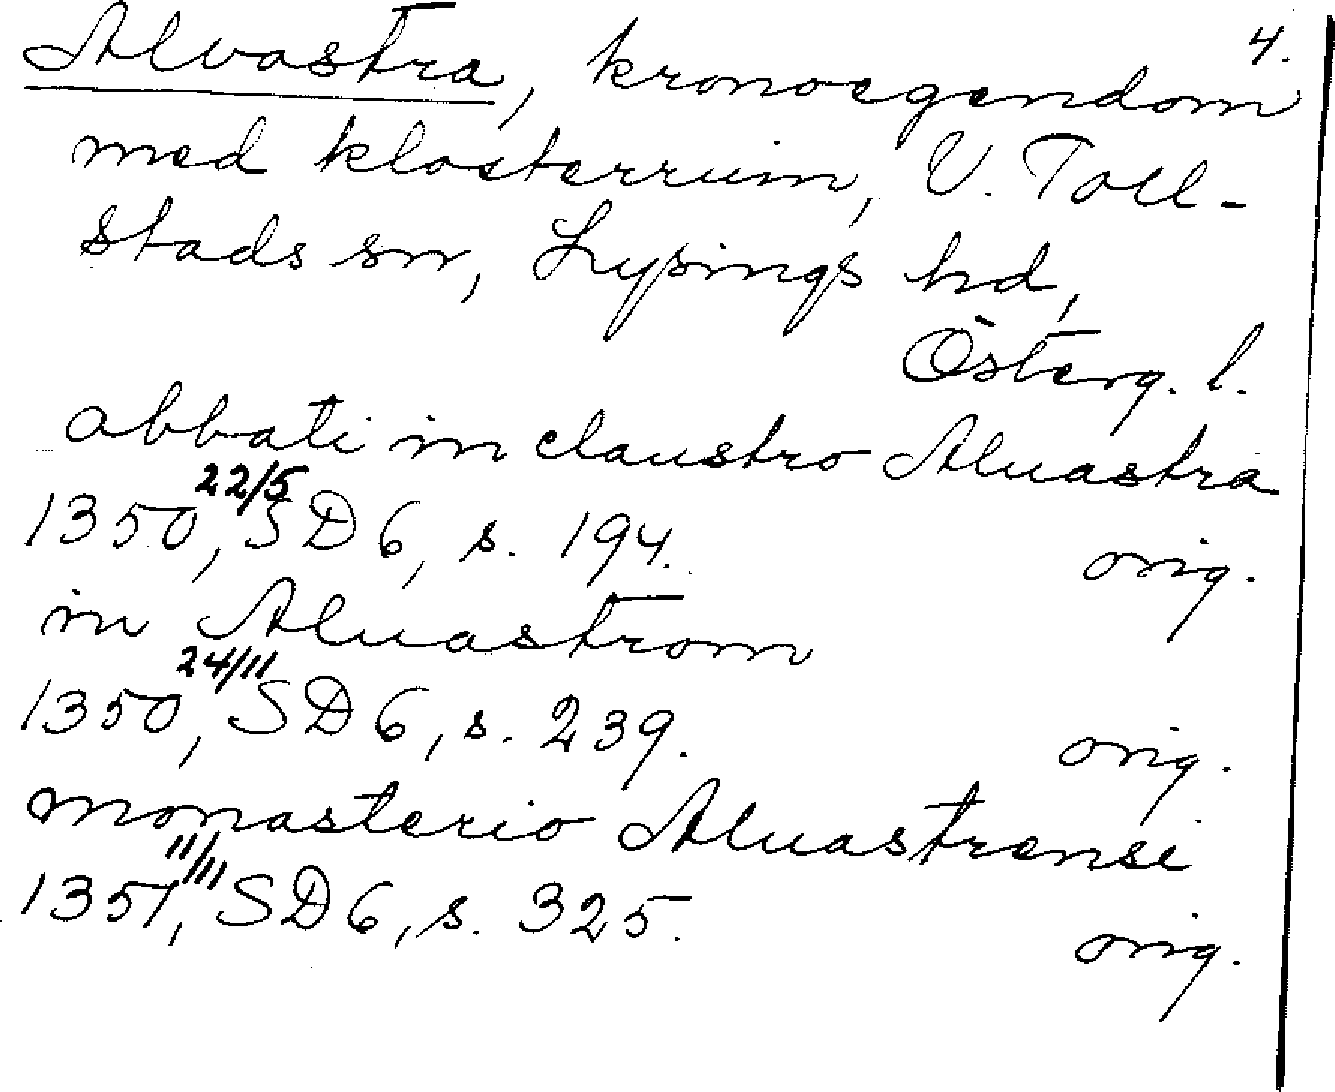 4.
Alvastra, kronoegendom
med klosterruin, V. Toll-
stads sn, Lysings hd,
Österg. l.
abbati in claustro Aluastra
1350 22/5, SD 6, s. 194. orig.
in Aluastrom
1350 24/11, SD 6, s. 239. orig.
monasterio Aluastrensi
1351 11/11, SD 6, s. 325. orig.